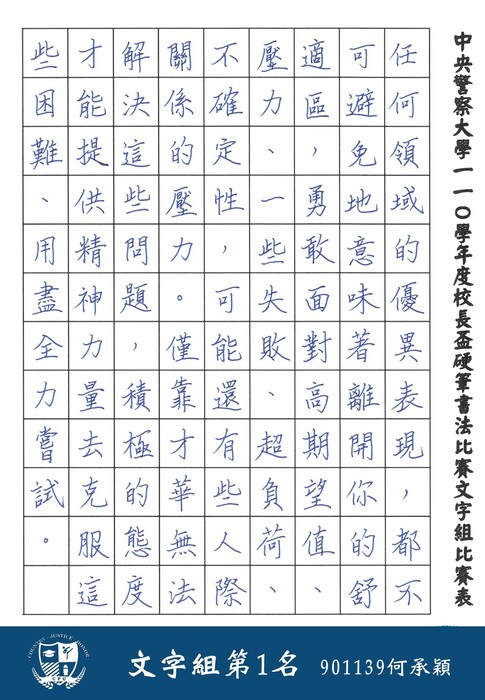 中央警察大學一一〇學年度校長盃硬筆書法比賽文字組比賽表
任何領域的優異表現，都不
可避免地意味著離開你的舒
適區，勇敢面對高期望值、
壓力、一些失敗、超負荷、
不確定性，可能還有些人際
關係的壓力。僅靠才華無法
解決這些問題，積極的態度
才能提供精神力量去克服這
些困難、用盡全力嘗試。
COUNTRY · JUSTICE · HONOR
文字組第1名 901139何承穎